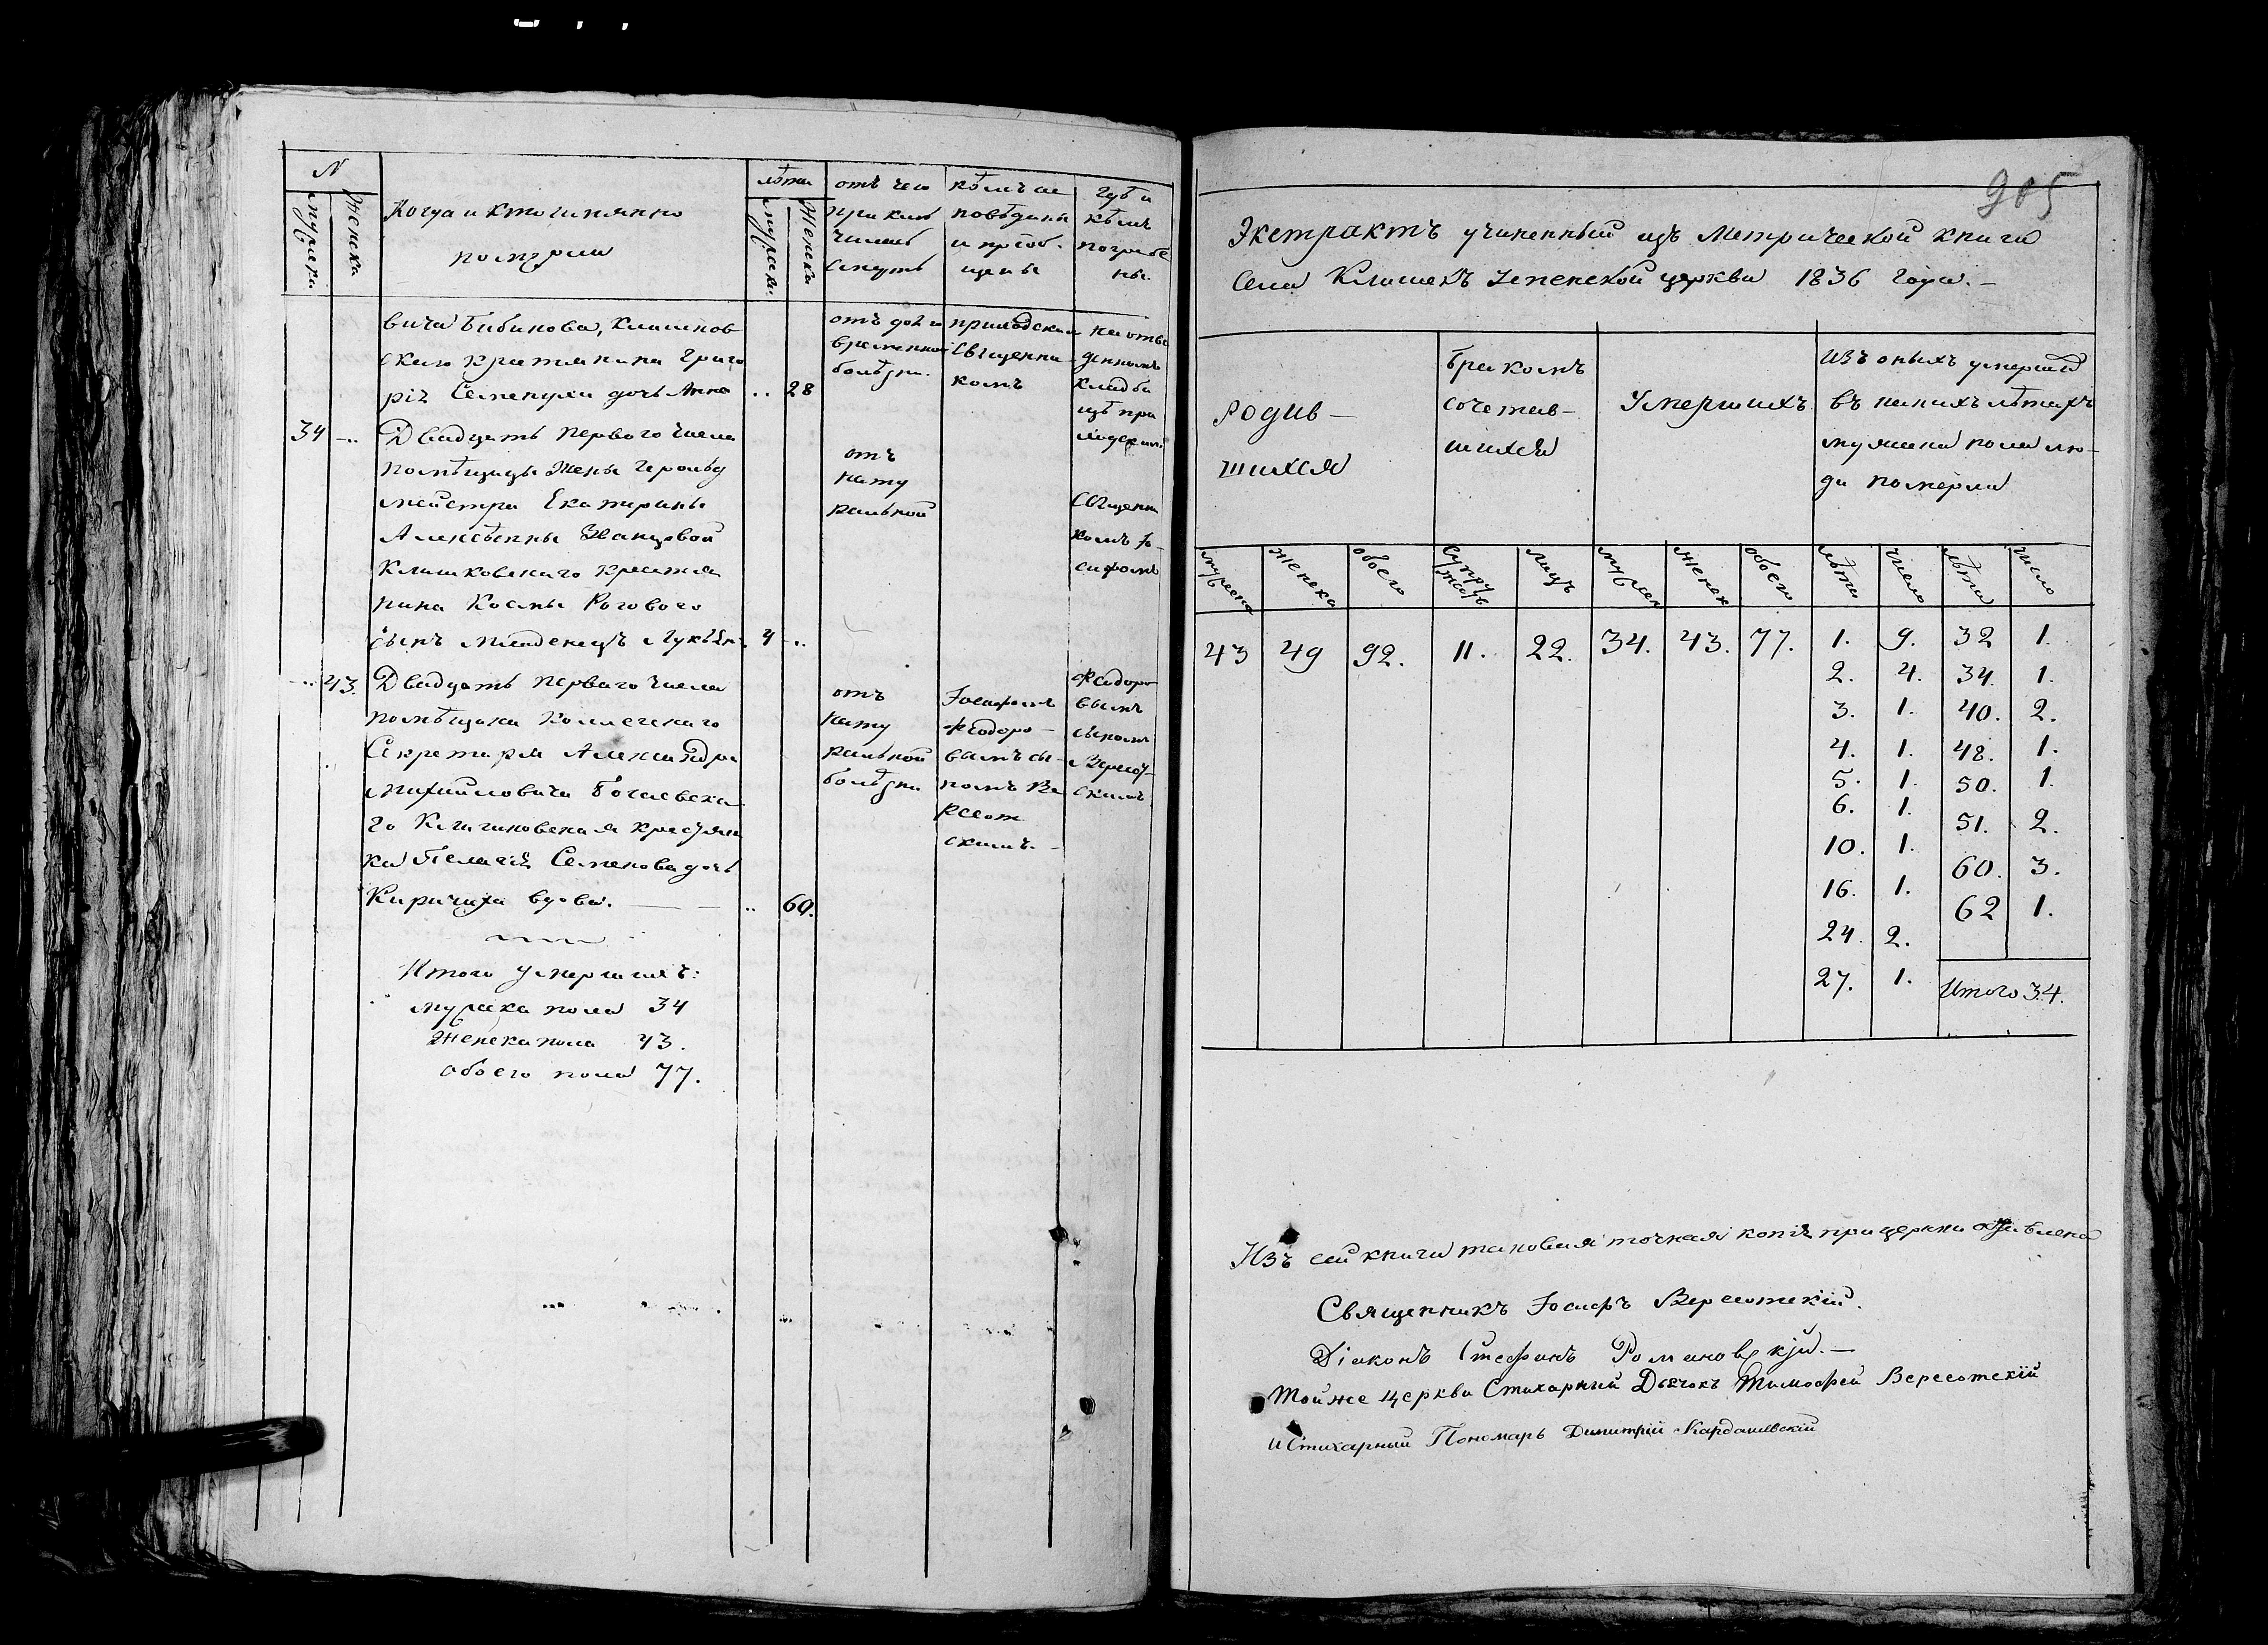 N
мужеска
Женска
Когда и кто имянно
померли
лѣта
мужеска
Женска
отъ чего
приклю
чилась
смерть
кѣмъ ис
повѣданы
и пріоб-
щены
Гдѣ и
кѣмъ
погребе
ны.
вича Бибикова, Клишков
скаго крестянина Григо
рія Семенухи дочь Анна .. 28
отъ долго
временной
болѣзни.
приходским
Свѣщенни
комъ
на отве
денномъ
кладби
щѣ при
ходским
34 -.. Двадцать перваго числа
помѣщицы Жены Герольд
мейстра Екатерины
Алексѣевны Званцовой
Клишковскаго крестья
нина Космы Роговаго
сынъ младенецъ Лукіян. 4 -..
отъ
нату
ральной
Свѣщенни
комъ Іо-
сифомъ
-.. 43. Двадцать перваго числа
помѣщика Коллежскаго
Секретаря Александра
Михайловича
го Клишковская крестьян
ка Пелагія Семенова дочь
Киричиха вдова. — — .. 60.
отъ
нату
ральной
болѣзни
Іосифомъ
Феодоро-
вымъ сы-
номъ Ве
ресот
скимъ. -
Феодоро
вымъ
сыномъ
Вересот-
скимъ
Итого умершихъ:
мужеска пола 34
Женска пола 43.
обоего пола 77.
905
Экстрактъ учиненный изъ Метрической книги
села Клишекъ Успенской церкви 1836 года. -
Родив-
шихся
Бракомъ
сочетав-
шихся
Умершихъ
Изъ оныхъ умершихъ
въ какихъ лѣтахъ
мужеска пола лю-
ди померли
мужеска
Женска
обоего
Супружъ
лицъ
мужеск
Женск
обоего
лѣта
число
лѣта
число
43 49 92. 11. 22. 34. 43. 77. 1. 9. 32 1.
2. 4. 34. 1.
3. 1. 40. 2.
4. 1. 48. 1.
5. 1. 50. 1.
6. 1. 51. 2.
10. 1. 60. 3.
16. 1. 62 1.
24. 2.
27. 1. Итого 34.
Изъ сей книги таковая точная копія при церкви оставлена
Священникъ Іосифъ Вересотскій.
Діаконъ Стефанъ Романовскій. -
Той же Церкви Стихарный Дьячокъ Тимофей Вересотскій
и Стихарный Пономарь Димитрій Кардашевскій